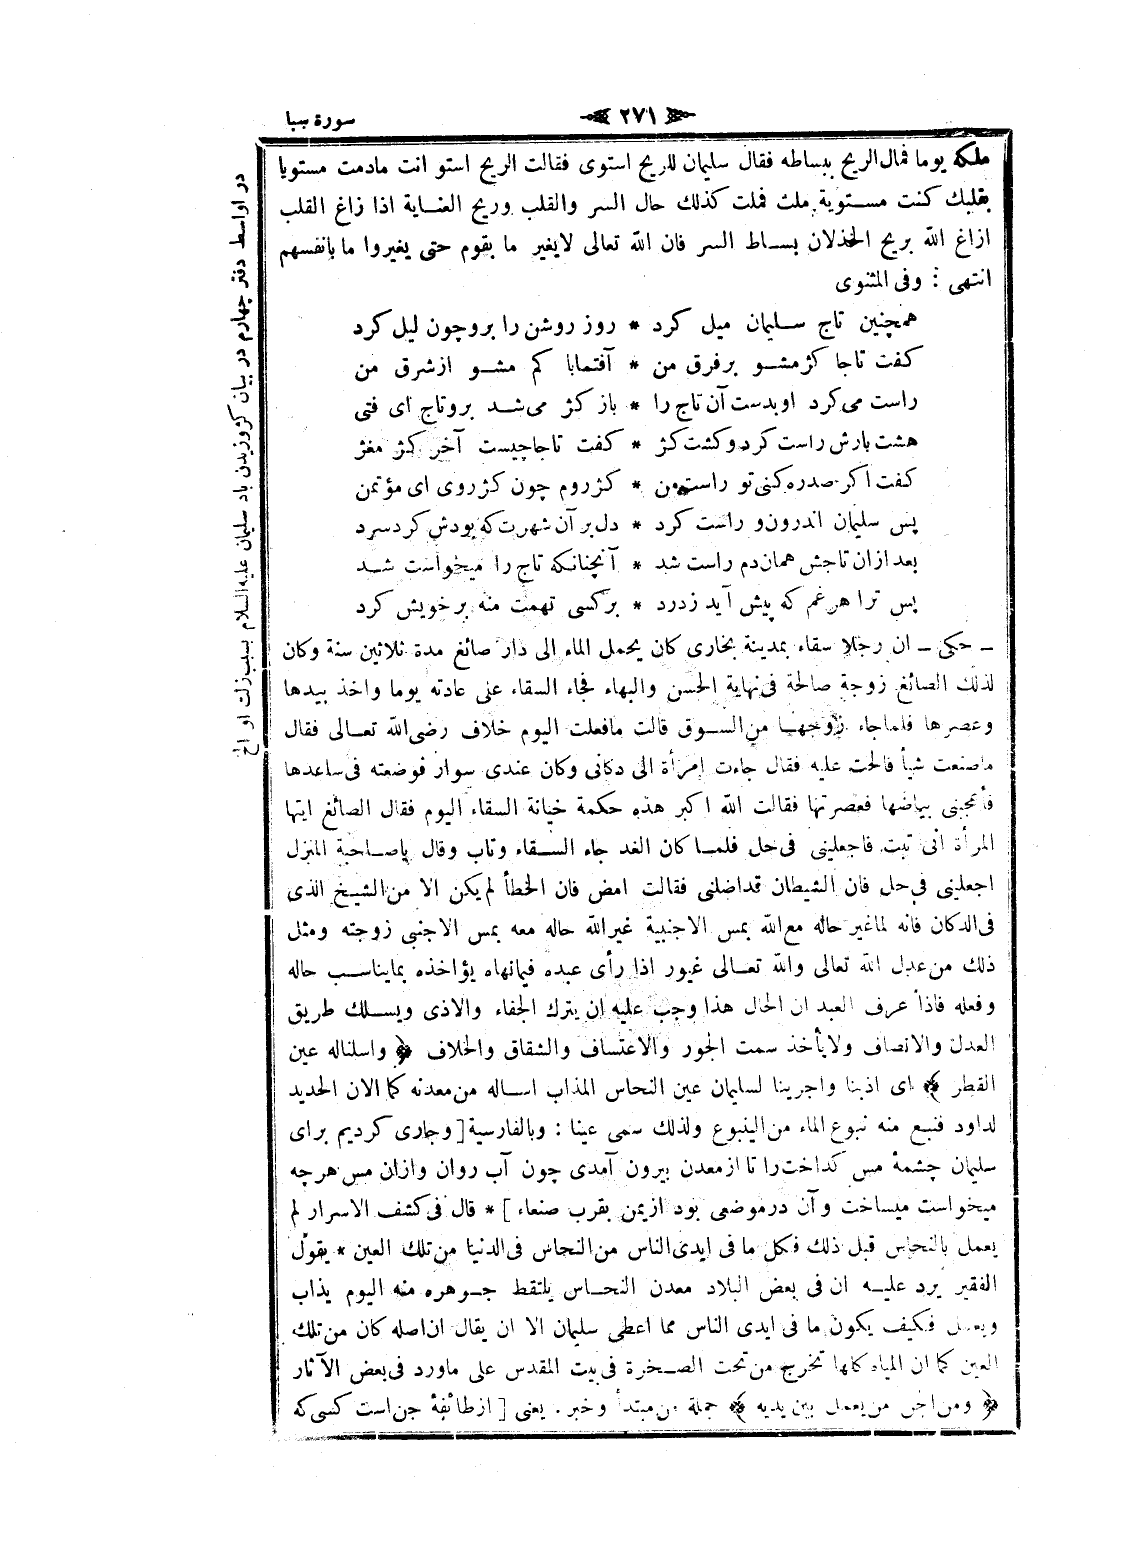 سورة سبا
﴿ ٢٧١ ﴾
ملكه يوما فمال الريح ببساطه فقال سليمان للريح استوى فقالت الريح استو انت مادمت مستويا
بقلبك كنت مستوية ملت فملت كذلك حال السر والقلب وريح العناية اذا زاغ القلب
ازاغ الله بريح الخذلان بساط السر فان الله تعالى لايغير ما بقوم حتى يغيروا ما بانفسهم
انتهى : وفى المثنوى
همچنين تاج سليمان ميل كرد * روز روشن را بروچون ليل كرد
كفت تاجا كژمشو برفرق من * آفتمابا كم مشو ازشرق من
راست مى‌كرد اوبدست آن تاج را * باز كژ مى‌شد بروتاج اى فتى
هشت بارش راست كرد وكشت كژ * كفت تاجاچيست آخر كژ مغژ
كفت اكر صدره كنى تو راست من * كژ روم چون كژ روى اى مؤتمن
پس سليمان اندرون راست كرد * دل بر آن شهوت كه بودش كرد سرد
بعد ازان تاجش همان دم راست شد * آنچنانكه تاج را ميخواست شد
پس ترا هر غم كه پيش آيد زدرد * بركسى تهمت منه برخويش كرد
ـ حكى ـ ان رجلا سقاء بمدينة بخارى كان يحمل الماء الى دار صائغ مدة ثلاثين سنة وكان
لذلك الصائغ زوجة صالحة فى نهاية الحسن والبهاء فجاء السقاء على عادته يوما واخذ بيدها
وعصرها فلماجاء زوجها من السوق قالت مافعلت اليوم خلاف رضى‌الله تعالى فقال
ماصنعت شيأ فالحت عليه فقال جاءت امرأة الى دكانى وكان عندى سوار فوضعته فى ساعدها
فأعجبنى بياضها فعصرتها فقالت الله اكبر هذه حكمة خيانة السقاء اليوم فقال الصائغ ايتها
المرأة انى تبت فاجعلينى فى حل فلما كان الغد جاء السقاء وتاب وقال ياصاحبة المنزل
اجعلينى فى حل فان الشيطان قداضلنى فقالت امض فان الخطأ لم يكن الا من الشيخ الذى
فى الدكان فانه لماغير حاله مع الله بمس الاجنبية غير الله حاله معه بمس الاجنبى زوجته ومثل
ذلك من عدل الله تعالى والله تعالى غيور اذا رأى عبده فيمانهاه يؤاخذه بمايناسب حاله
وفعله فاذا عرف العبد ان الحال هذا وجب عليه ان يترك الجفاء والاذى ويسلك طريق
العدل والانصاف ولايأخذ سمت الجور والاعتساف والشقاق والخلاف ﴿ واسلناله عين
القطر ﴾ اى اذبنا واجرينا لسليمان عين النحاس المذاب اساله من معدنه كما الان الحديد
لداود فنبع منه نبوع الماء من الينبوع ولذلك سمى عينا : وبالفارسية [ وجارى كرديم براى
سليمان چشمۀ مس كداخت را تا از معدن بيرون آمدى چون آب روان وازان مس هرچه
ميخواست ميساخت وآن درموضعى بود ازيمن بقرب صنعاء ] * قال فى كشف الاسرار لم
يعمل بالنحاس قبل ذلك فكل ما فى ايدى الناس من النحاس فى الدنيا من تلك العين * يقول
الفقير يرد عليه ان فى بعض البلاد معدن النحاس يلتقط جوهره منه اليوم يذاب
ويعمل فكيف يكون ما فى ايدى الناس مما اعطى سليمان الا ان يقال ان اصله كان من تلك
العين كما ان المياه كلها تخرج من تحت الصخرة فى بيت المقدس على ماورد فى بعض الآثار
﴿ ومن الجن من يعمل بين يديه ﴾ جملة من مبتدأ وخبر . يعنى [ از طائفۀ جن است كسى كه
در اواسط دفتر چهارم در بيان كژوزيدن باد سليمان عليه‌السلام بسبب زلت او الخ